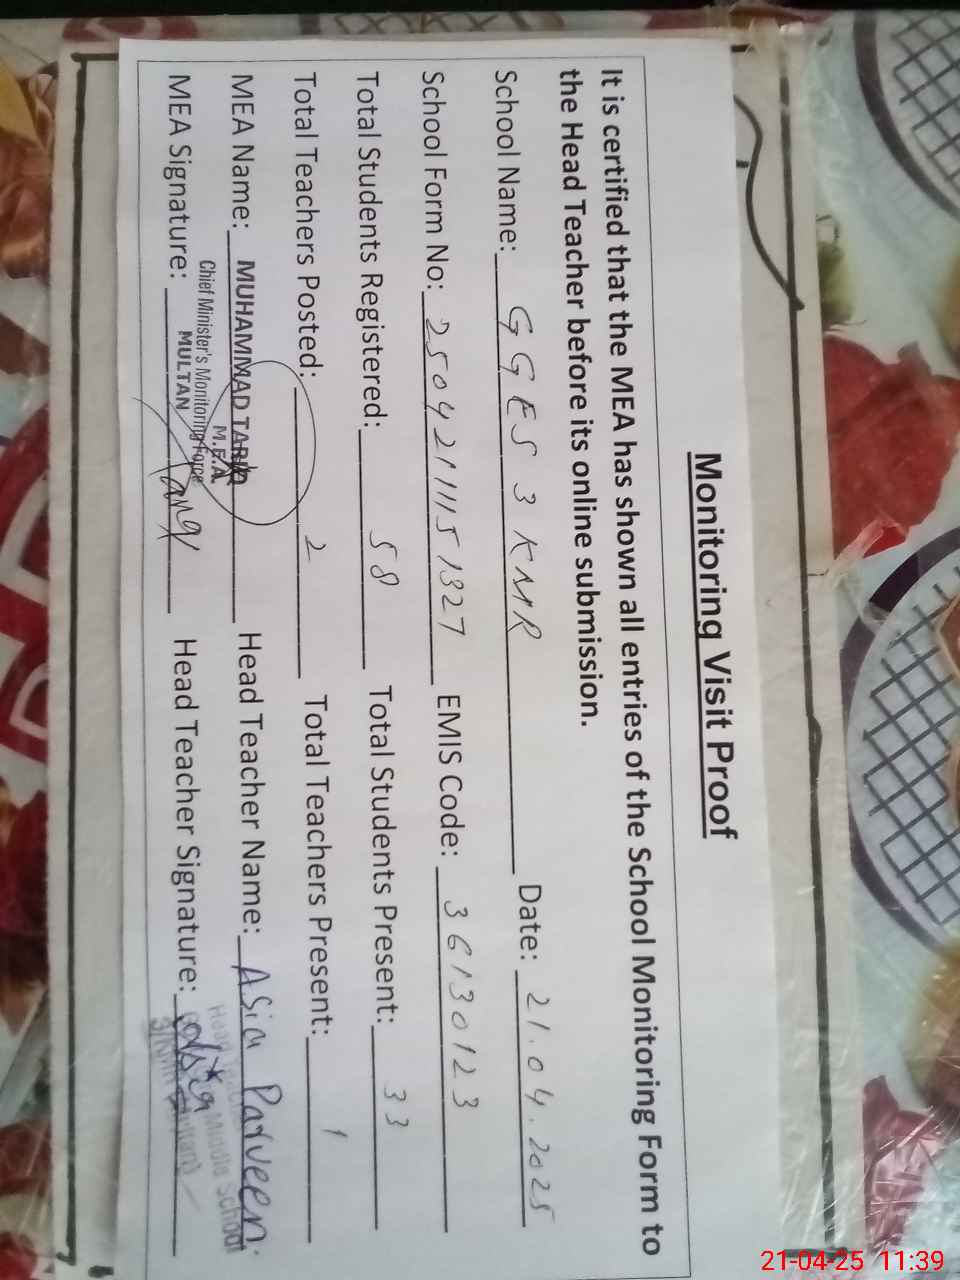 Monitoring Visit Proof
It is certified that the MEA has shown all entries of the School Monitoring Form to
the Head Teacher before its online submission.
School Name: GGES 3 KMR Date: 21.04.2025
School Form No: 25042111151327 EMIS Code: 36130123
Total Students Registered: 58 Total Students Present: 33
Total Teachers Posted: 2 Total Teachers Present: 1
MEA Name: MUHAMMAD TARIQ Head Teacher Name: Asia Parveen.
M.E.A
Chief Minister's Monitoring Force
MULTAN
MEA Signature: Tariq Head Teacher Signature: Asia
Middle School
21-04-25 11:39